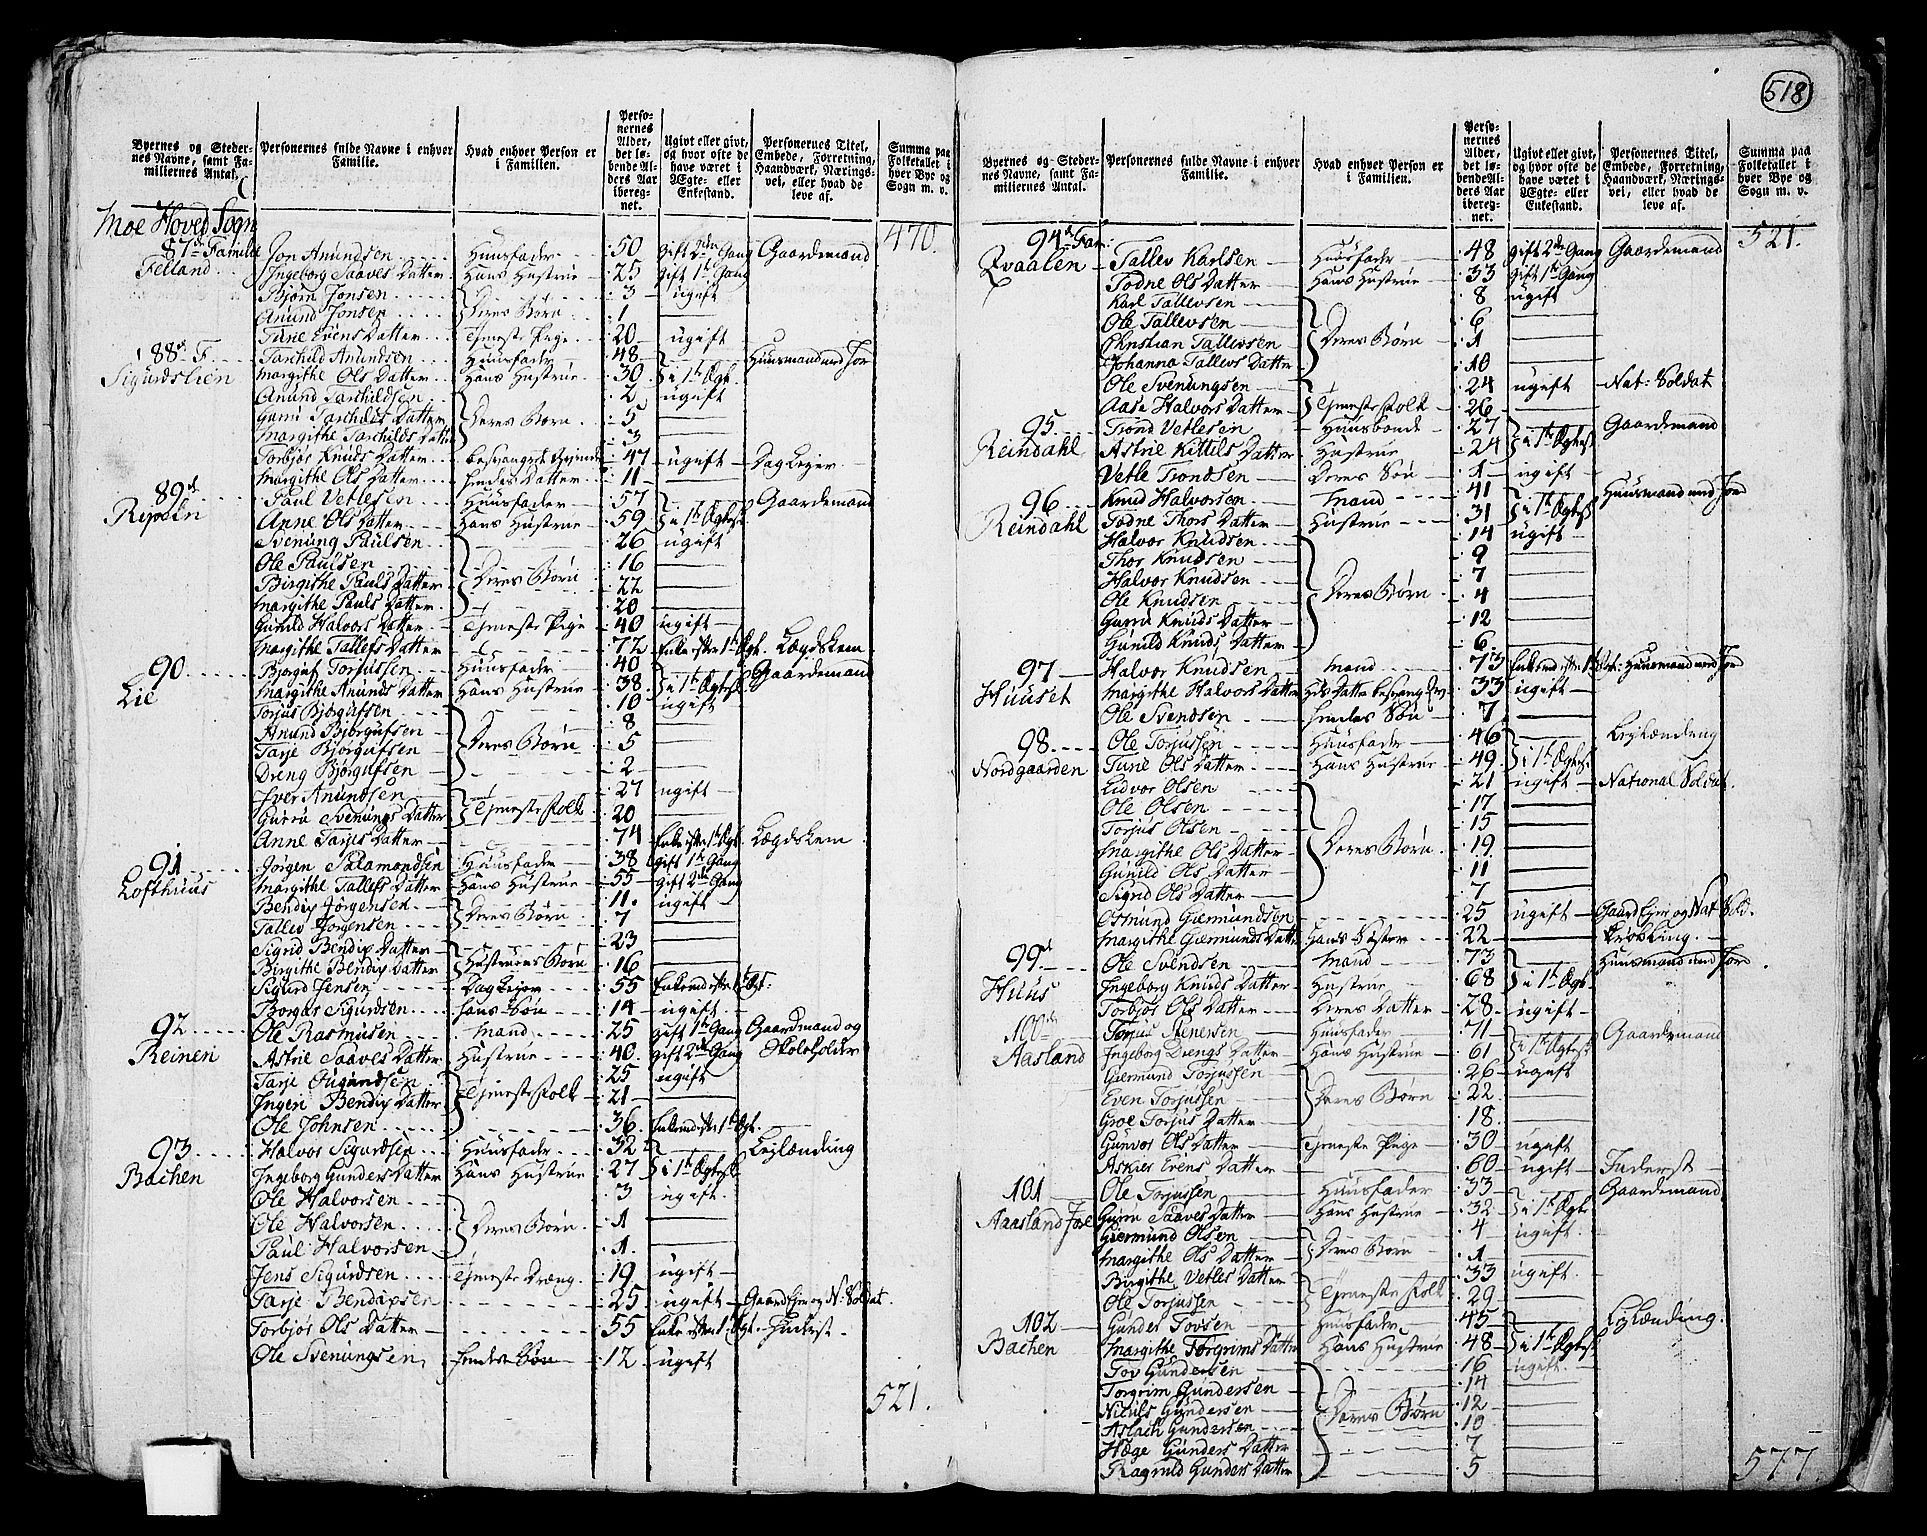 518
Byernes og Steder-
nes Navne, samt Fa-
miliernes Antal.
Personernes fulde Navne i enhver
Familie.
Hvad enhver Person er
i Familien.
Perso-
nernes
Alder,
det lø-
bende Al-
ders Aar
ibereg-
net.
Ugivt eller givt,
og hvor ofte de
have været i
Ægte- eller
Enkestand.
Personernes Titel,
Embede, Forretning,
Haandværk, Nærings-
vei, eller hvad de
leve af.
Summa paa
Folketallet i
hver Bye og
Sogn m. v.
Moe Hoved Sogn
470.
87de Familie Jon Anundsen Huusfader 50 gift 2den Gang Gaardemand
Felland Ingeborg Saaves Datter Hans Hustrue 25 gift 1te Gang
Bjørn Jonsen Deres Børn 3 ugift
Anund Jonsen 1
Tune Evens Datter Tjeneste Pige 20 ugift
88de F. Tarchild Anundsen Huusfader 48 i 1te Ægt. Huusmand med Jor
Sigurdslien Margithe Ols Datter Hans Hustrue 30
Anund Tarchildsen Deres Børn 2 ugift
Gurru Tarchilds Datter 5
Margithe Tarchilds Datter 3
Torbjør Knuds Datter besvangret Qvinde 47 ugift Dag Lejer
Margithe Ols Datter hendes Datter 11
89de Paul Vetlesen Huusfader 57 i 1te Ægtesk Gaardemand
Ripden Anne Ols Datter Hans Hustrue 59
Svenung Paulsen Deres Børn 26 ugift
Ole Paulsen 16
Birgithe Pauls Datter 22
Margithe Pauls Datter 20
Gunild Halvors Datter Tjeneste Pige 40 ugift
Margithe Tallefs Datter 72 Enke efter 1te Ægt. Lægdslem
90 Bjørguf Torjussen Huusfader 40 i 1te Ægtesk Gaardemand
Lie Margithe Anunds Datter Hans Hustrue 38
Torjus Bjørgufsen Deres Børn 10 ugift
Anund Bjørgufsen 8
Tarje Bjørgufsen 5
Dreng Bjørgufsen 2
Iver Anundsen Tjeneste Folk 27 ugift
Gurro Svenungs Datter 20
Anne Tarjes Datter 74 Enke efter 1te Ægt. Lægdslem
91 Jørgen Salamondsen Huusfader 38 gift 1te Gang
Lofthuus Margithe Tallefs Datter Hans Hustrue 55 gift 2den Gang
Bendix Jørgensen Deres Børn 11 ugift
Tallev Jørgensen 7
Sigrid Bendix Datter Hustruens Børn 23
Birgithe Bendix Datter 16
Sigurd Jensen Dag Lejer 55 Enkemd efter 1te Ægt:
Borgas Sigurdsen Hans Søn 14 ugift
92 Ole Rasmusen Mand 25 gift 1te Gang Gaardmand og
Reinen Astrie Saaves Datter Hustrue 40 gift 2den Gang Skoleholder
Tarje Ougundsen Tjeneste Folk 25 ugift
Ingeri Bendix Datter 21
Ole Johnsen 36 Enkemd efter 1te Ægt.
93 Halvor Sigurdsen Huusfader 32 i 1te Ægtesk Leylænding
Bachen Ingeborg Gunders Datter Hans Hustrue 27
Ole Halvorsen Deres Børn 3 ugift
Ole Halvorsen 1
Paul Halvorsen 1
Jens Sigurdsen Tjeneste Dræng 19 ugift
Tarje Bendixsen 25 ugift Gaard Ejer og N: Soldat
Torbjør Ols Datter 55 Enke efter 1te Ægt. Inderst
Ole Svenungsen hendes Søn 12 ugift
521.
Byernes og Steder-
nes Navne, samt Fa-
miliernes Antal.
Personernes fulde Navne i enhver
Familie.
Hvad enhver Person er
i Familien.
Perso-
nernes
Alder,
det lø-
bende Al-
ders Aar
ibereg-
net.
Ugivt eller givt,
og hvor ofte de
have været i
Ægte- eller
Enkestand.
Personernes Titel,
Embede, Forretning,
Haandværk, Nærings-
vei, eller hvad de
leve af.
Summa paa
Folketallet i
hver Bye og
Sogn m. v.
521.
94de Fam: Tallev Karlsen Huusfader 48 gift 2den Gang Gaardemand
Qvaalen Todne Ols Datter Hans Hustrue 33 gift 1te Gang
Karl Tallevsen Deres Børn 8 ugift
Ole Tallevsen 6
Christian Tallevsen 1
Johanna Tallevs Datter 10
Ole Svenungsen Tjeneste Folk 24 ugift Nat: Soldat
Aase Halvors Datter 26
95 Trond Vetlesen Huusbonde 27 i 1te Ægtesk Gaardemand
Reindahl Astrie Kittils Datter Hustrue 24
Vetle Trondsen Deres Søn 1 ugift
96 Knud Halvorsen Mand 41 i 1te Ægtesk Huusmand med Jord
Reindahl Todne Thors Datter Hustrue 31
Halvor Knudsen Deres Børn 14 ugift
Thor Knudsen 9
Halvor Knudsen 7
Ole Knudsen 4
Gurru Knuds Datter 12
Gunild Knuds Datter 6
97 Halvor Knudsen Mand 73 Enkemd efter 1te Ægt: Huusmand med Jord
Huuset Margithe Halvors Datter 33 ugift
Ole Svendsen hendes Søn 7
98 Ole Torjussen Huusfader 46 i 1te Ægtesk. Leylænding
Nordgaarden Tune Ols Datter Hans Hustrue 49
Eidvor Olsen Deres Børn 21 ugift National Soldat
Ole Olsen 17
Torjus Olsen 15
Margithe Ols Datter 19
Gunild Ols Datter 11
Sigrid Ols Datter 7
Osmund Giermundsen 25 ugift Gaard Ejer og Nat Sold.
Margithe Giermunds Datter Hans Søster 22 Krøbling
99de Ole Svendsen Mand 73 i 1te Ægt. Huusmand med Jord
Huus Ingeborg Knuds Datter Hustrue 68
Torbjør Ols Datter Deres Datter 28 ugift
100de Torjus Stenersen Huusfader 71 i 1te Ægtesk Gaardemand
Aasland Ingeborg Drengs Datter Hans Hustrue 61
Giermund Torjussen Deres Børn 26 ugift
Even Torjussen 22
Groe Torjus Datter 18
Gunvor Ols Datter Tjeneste Pige 30 ugift
Askier Evens Datter 60 ugift Inderst
101 Ole Torjussen Huusfader 33 i 1te Ægt. Gaardemand
Aasland Gurru Saaves Datter Hans Hustrue 32
Giermund Olsen Deres Børn 4 ugift
Margithe Ols Datter 1
Birgithe Vetles Datter Tjeneste Folk 33 ugift
Ole Torjussen 29
102 Gunder Tovsen Huusfader 45 i 1te Ægtesk Leylænding
Bachen Margithe Torgrims Datter Hans Hustrue 48
Tov Gundersen Deres Børn 16 ugift
Torgrim Gundersen 14
Niculs Gundersen 12
Aslach Gundersen 10
Hæge Gunders Datter 7
Ragnild Gunders Datter 5
577.